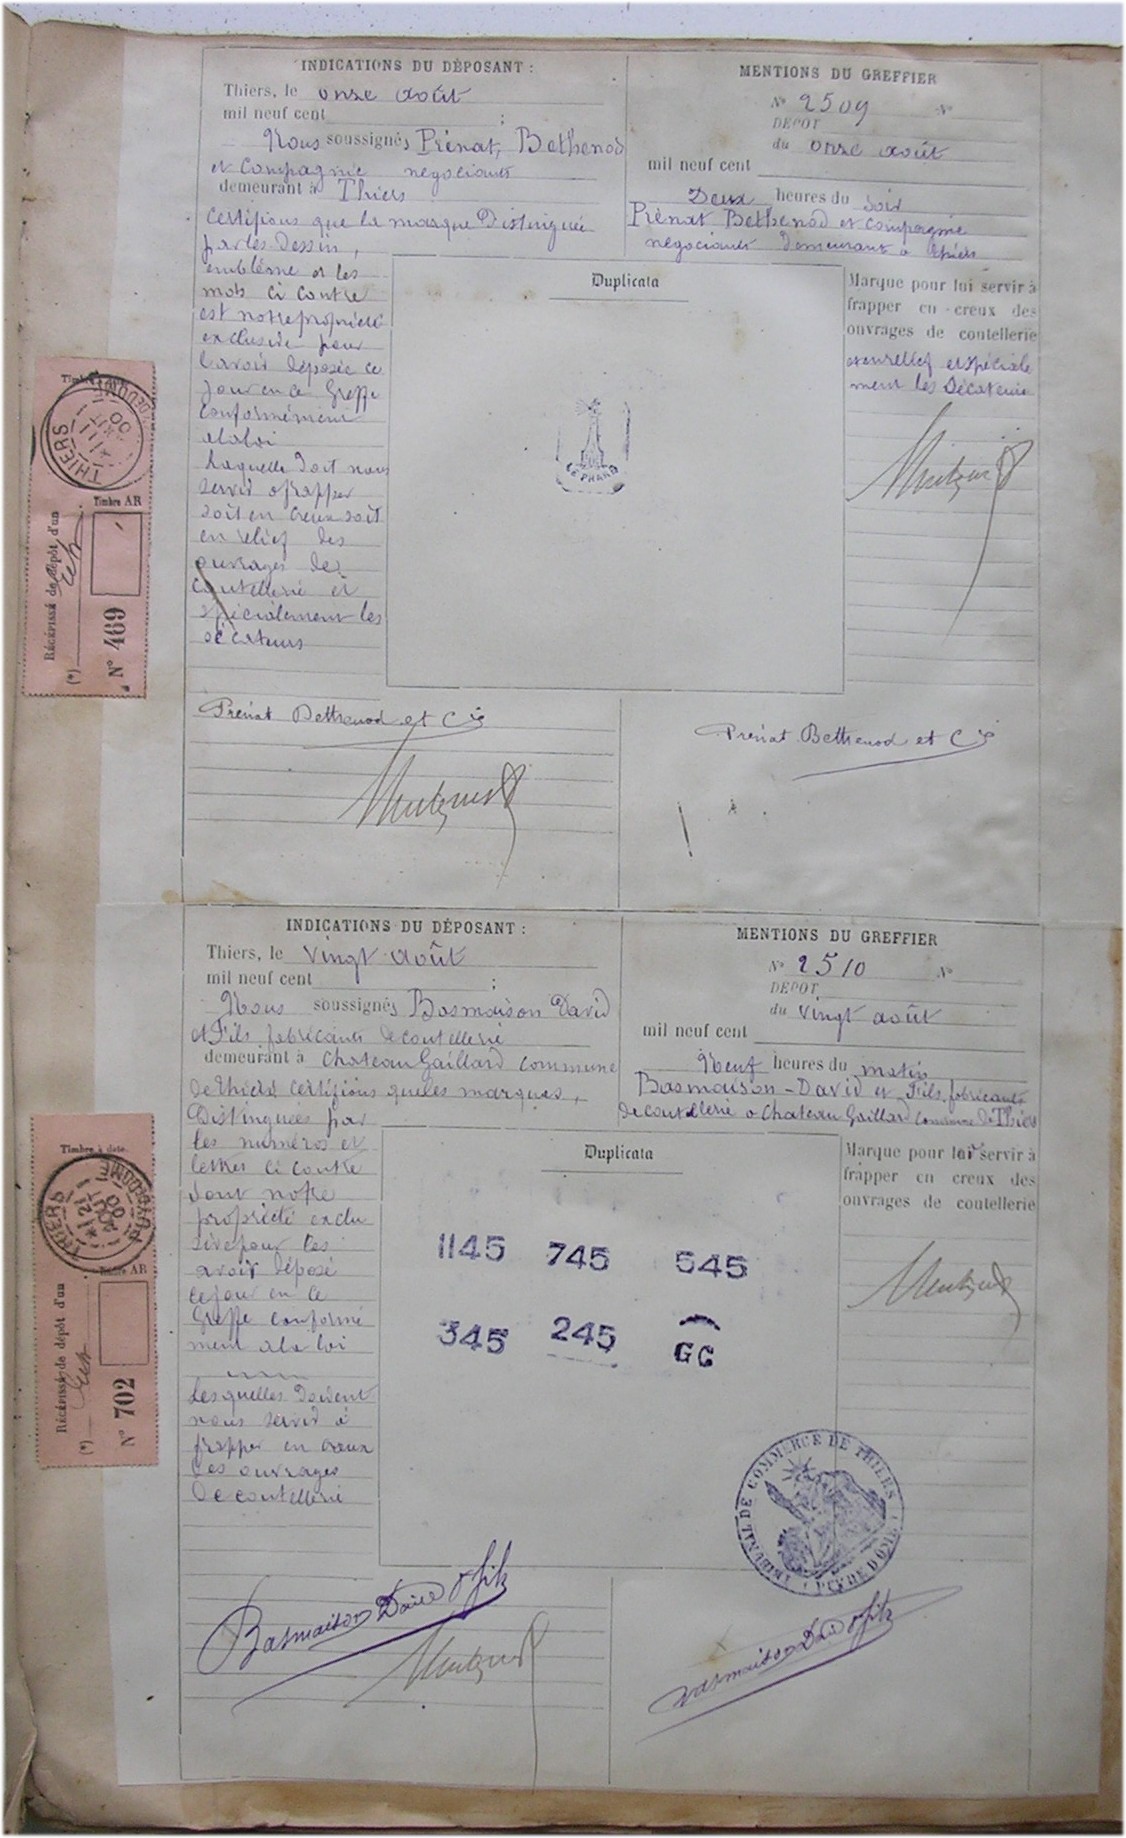 INDICATIONS DU DÉPOSANT :
Thiers, le onze août
mil neuf cent ;
Nous soussignés Prénat, Bethenod
et Compagnie négociants
demeurant à Thiers
Certifions que la marque Distinguée
par les Dessin,
emblème et les
mots ci contre
est notre propriété
exclusive pour
l'avoir déposée ce
jour en ce Greffe
conformément
a la loi
Laquelle doit nous
servir a frapper
soit en creux soit
en relief des
ouvrages de
coutellerie et
spécialement les
sécateurs
Prénat Bethenod et Cie
MENTIONS DU GREFFIER
No 2509 No
DÉPOT
du onze août
mil neuf cent
Deux heures du soir
Prénat Bethenod et compagnie
négociants demeurant a Thiers
Duplicata
LE PHARE
Marque pour lui servir à
frapper en creux des
ouvrages de coutellerie
et en relief et spéciale
ment les Sécateurs
Prénat Bethenod et Cie
Timbre
THIERS
PUY-DE-DOME
Timbre AR
Récépissé de dépôt d'un
(*)
No 469
INDICATIONS DU DÉPOSANT :
Thiers, le vingt août
mil neuf cent ;
Nous soussignés Basmaison David
et Fils fabricants de coutellerie
demeurant à Chateau Gaillard commune
de Thiers certifions que les marques,
Distinguées par
les numéros et
lettres ci contre
sont notre
propriété exclu
sive pour les
avoir déposé
ce jour en ce
Greffe conformé
ment a la loi
Lesquelles doivent
nous servir à
frapper en creux
des ouvrages
de coutellerie
Basmaison David & fils
MENTIONS DU GREFFIER
No 2510 No
DÉPOT
du vingt août
mil neuf cent
Neuf heures du matin
Basmaison-David et Fils, fabricants
de coutellerie a Chateau Gaillard commune de Thiers
Duplicata
1145 745 545
345 245 GG
Marque pour lui servir à
frapper en creux des
ouvrages de coutellerie
TRIBUNAL DE COMMERCE DE THIERS
(PUY-DE-DOME)
Basmaison David & fils
Timbre à date.
THIERS
PUY-DE-DOME
Timbre AR
Récépissé de dépôt d'un
(*)
No 702